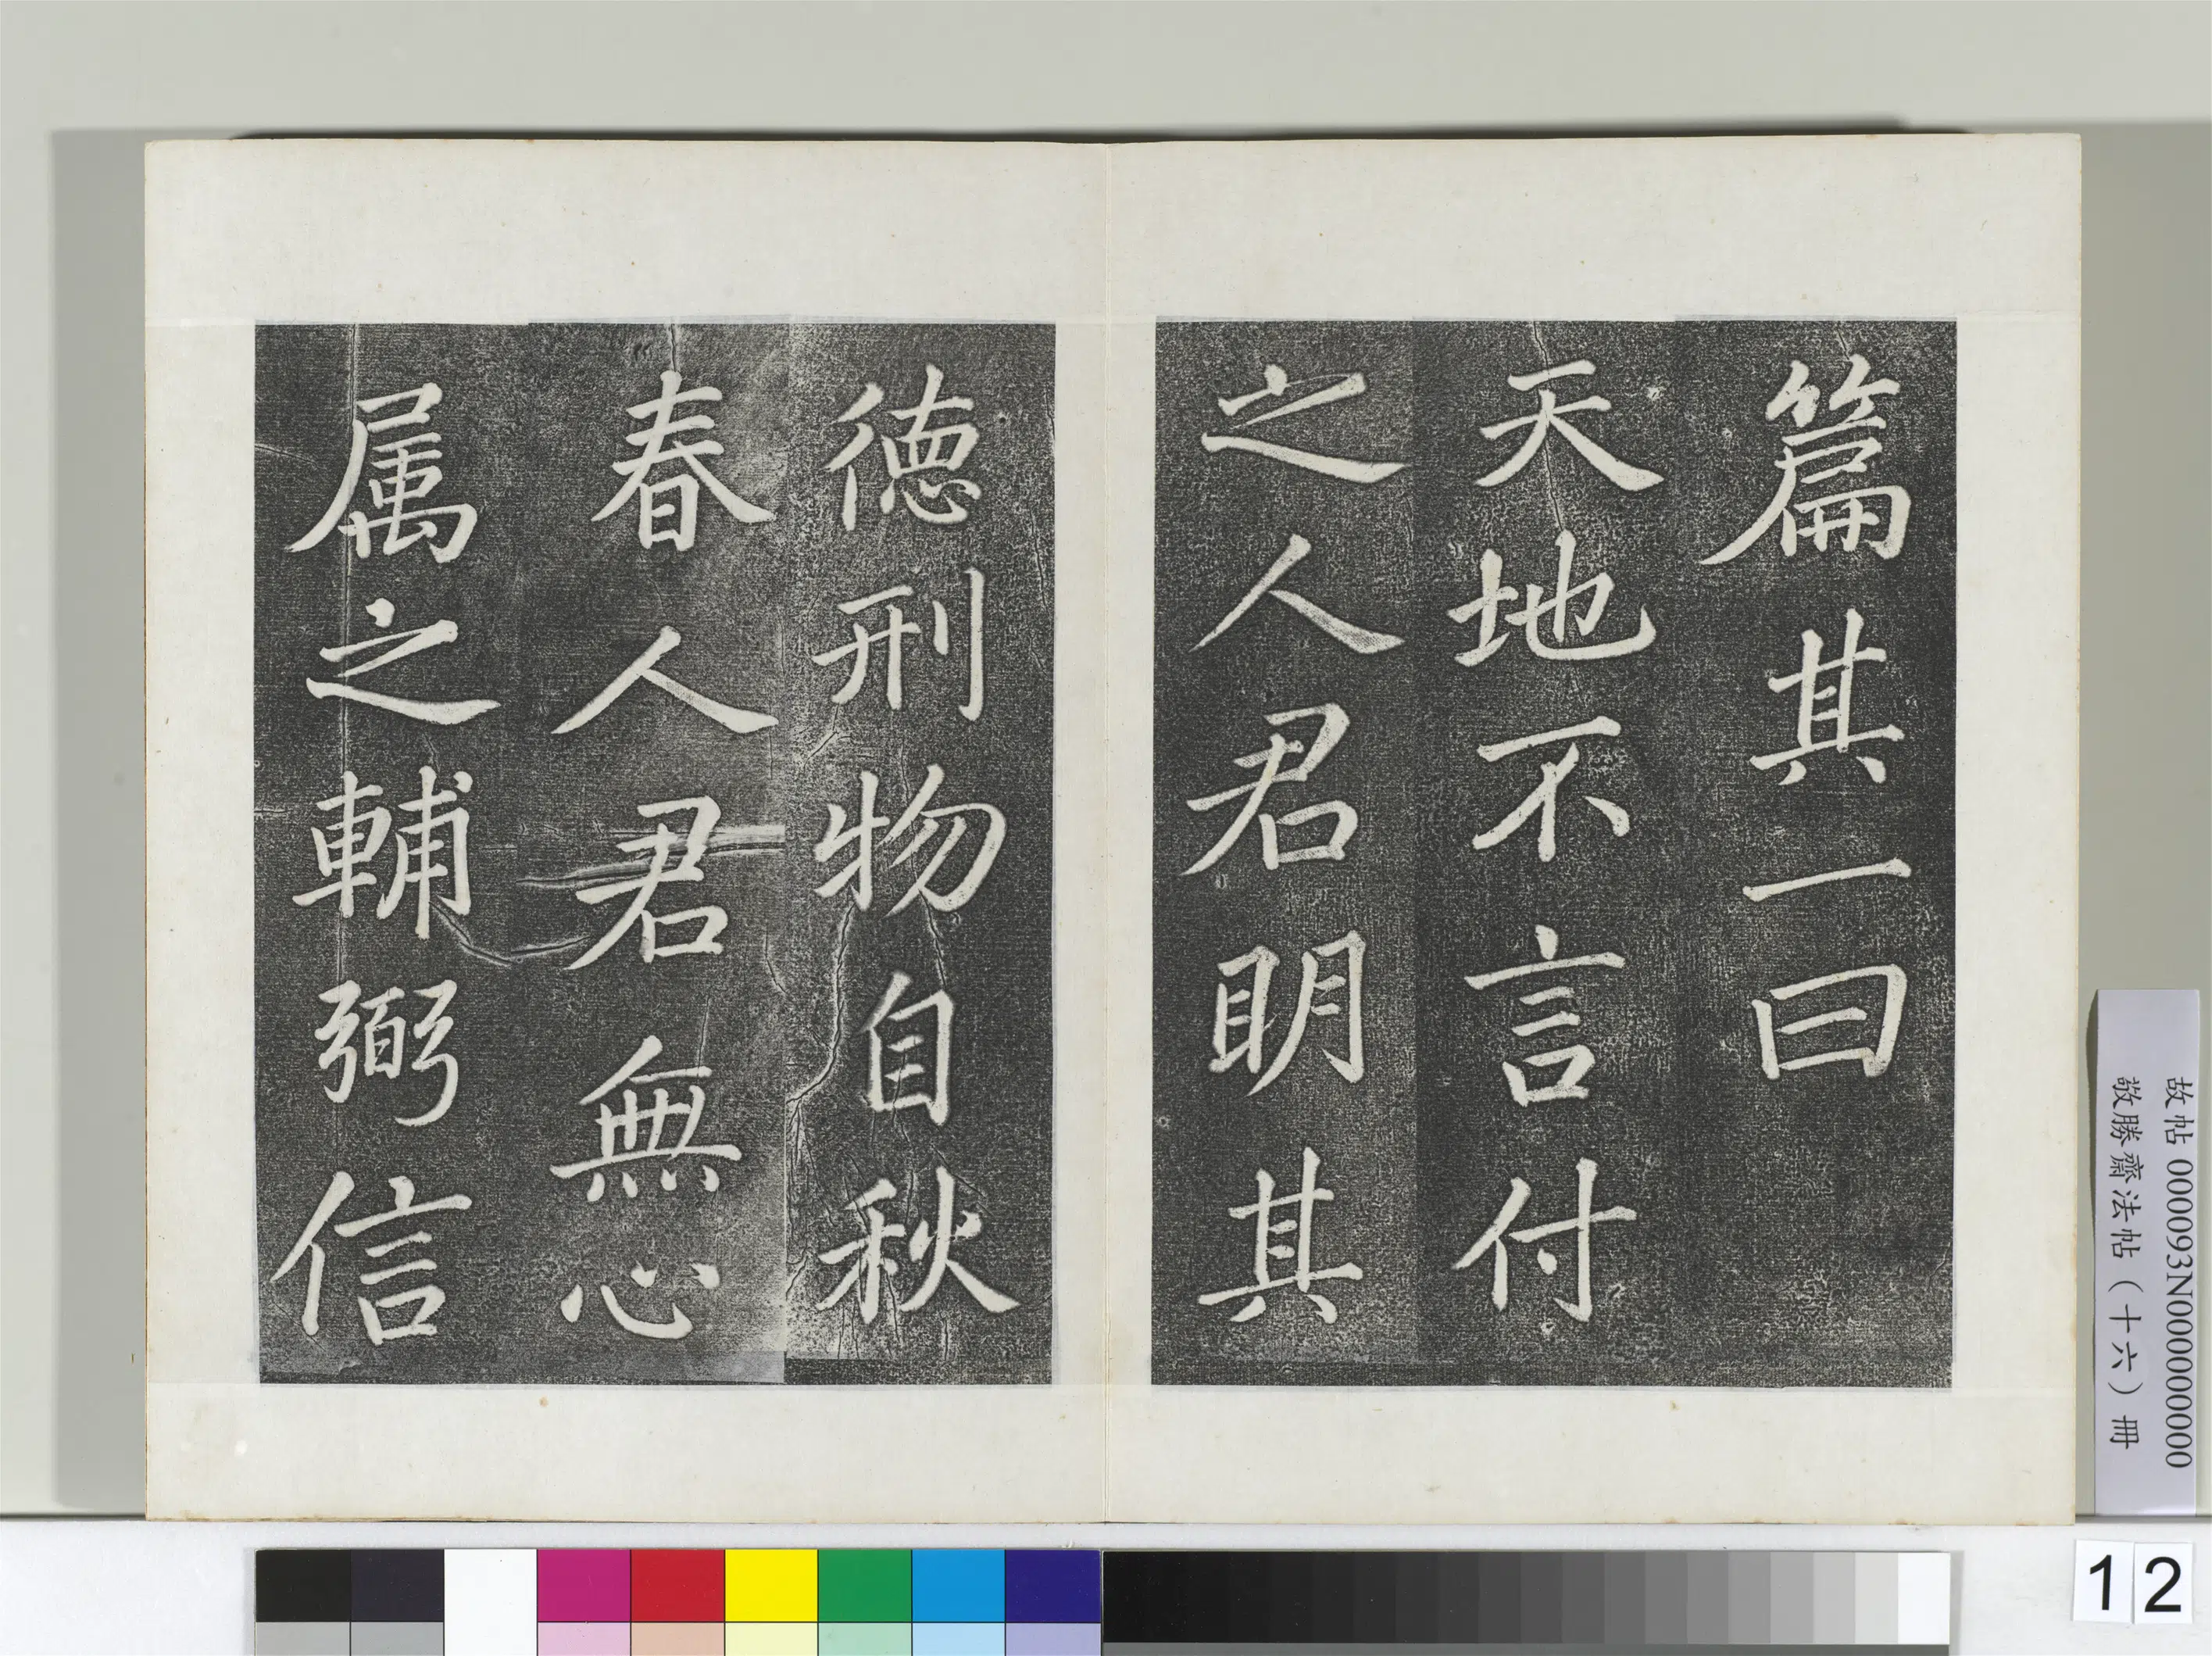 篇其一曰
天地不言付
之人君明其
徳刑物自秋
春人君無心
属之輔弼信
故帖 000093N000000000
敬勝齋法帖（十六）冊
12